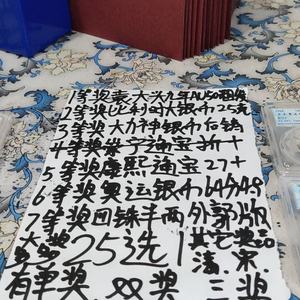 1等奖袁大头九年AU50圆角
2等奖比利时大银币25克
3等奖大力神银币后铸
4等奖崇宁通宝折十
5等奖康熙通宝27+
6等奖奥运银币64分A9
7等奖四铢半两外郭版
25选1 其它奖品
有单奖 双奖 三奖
清.宋.